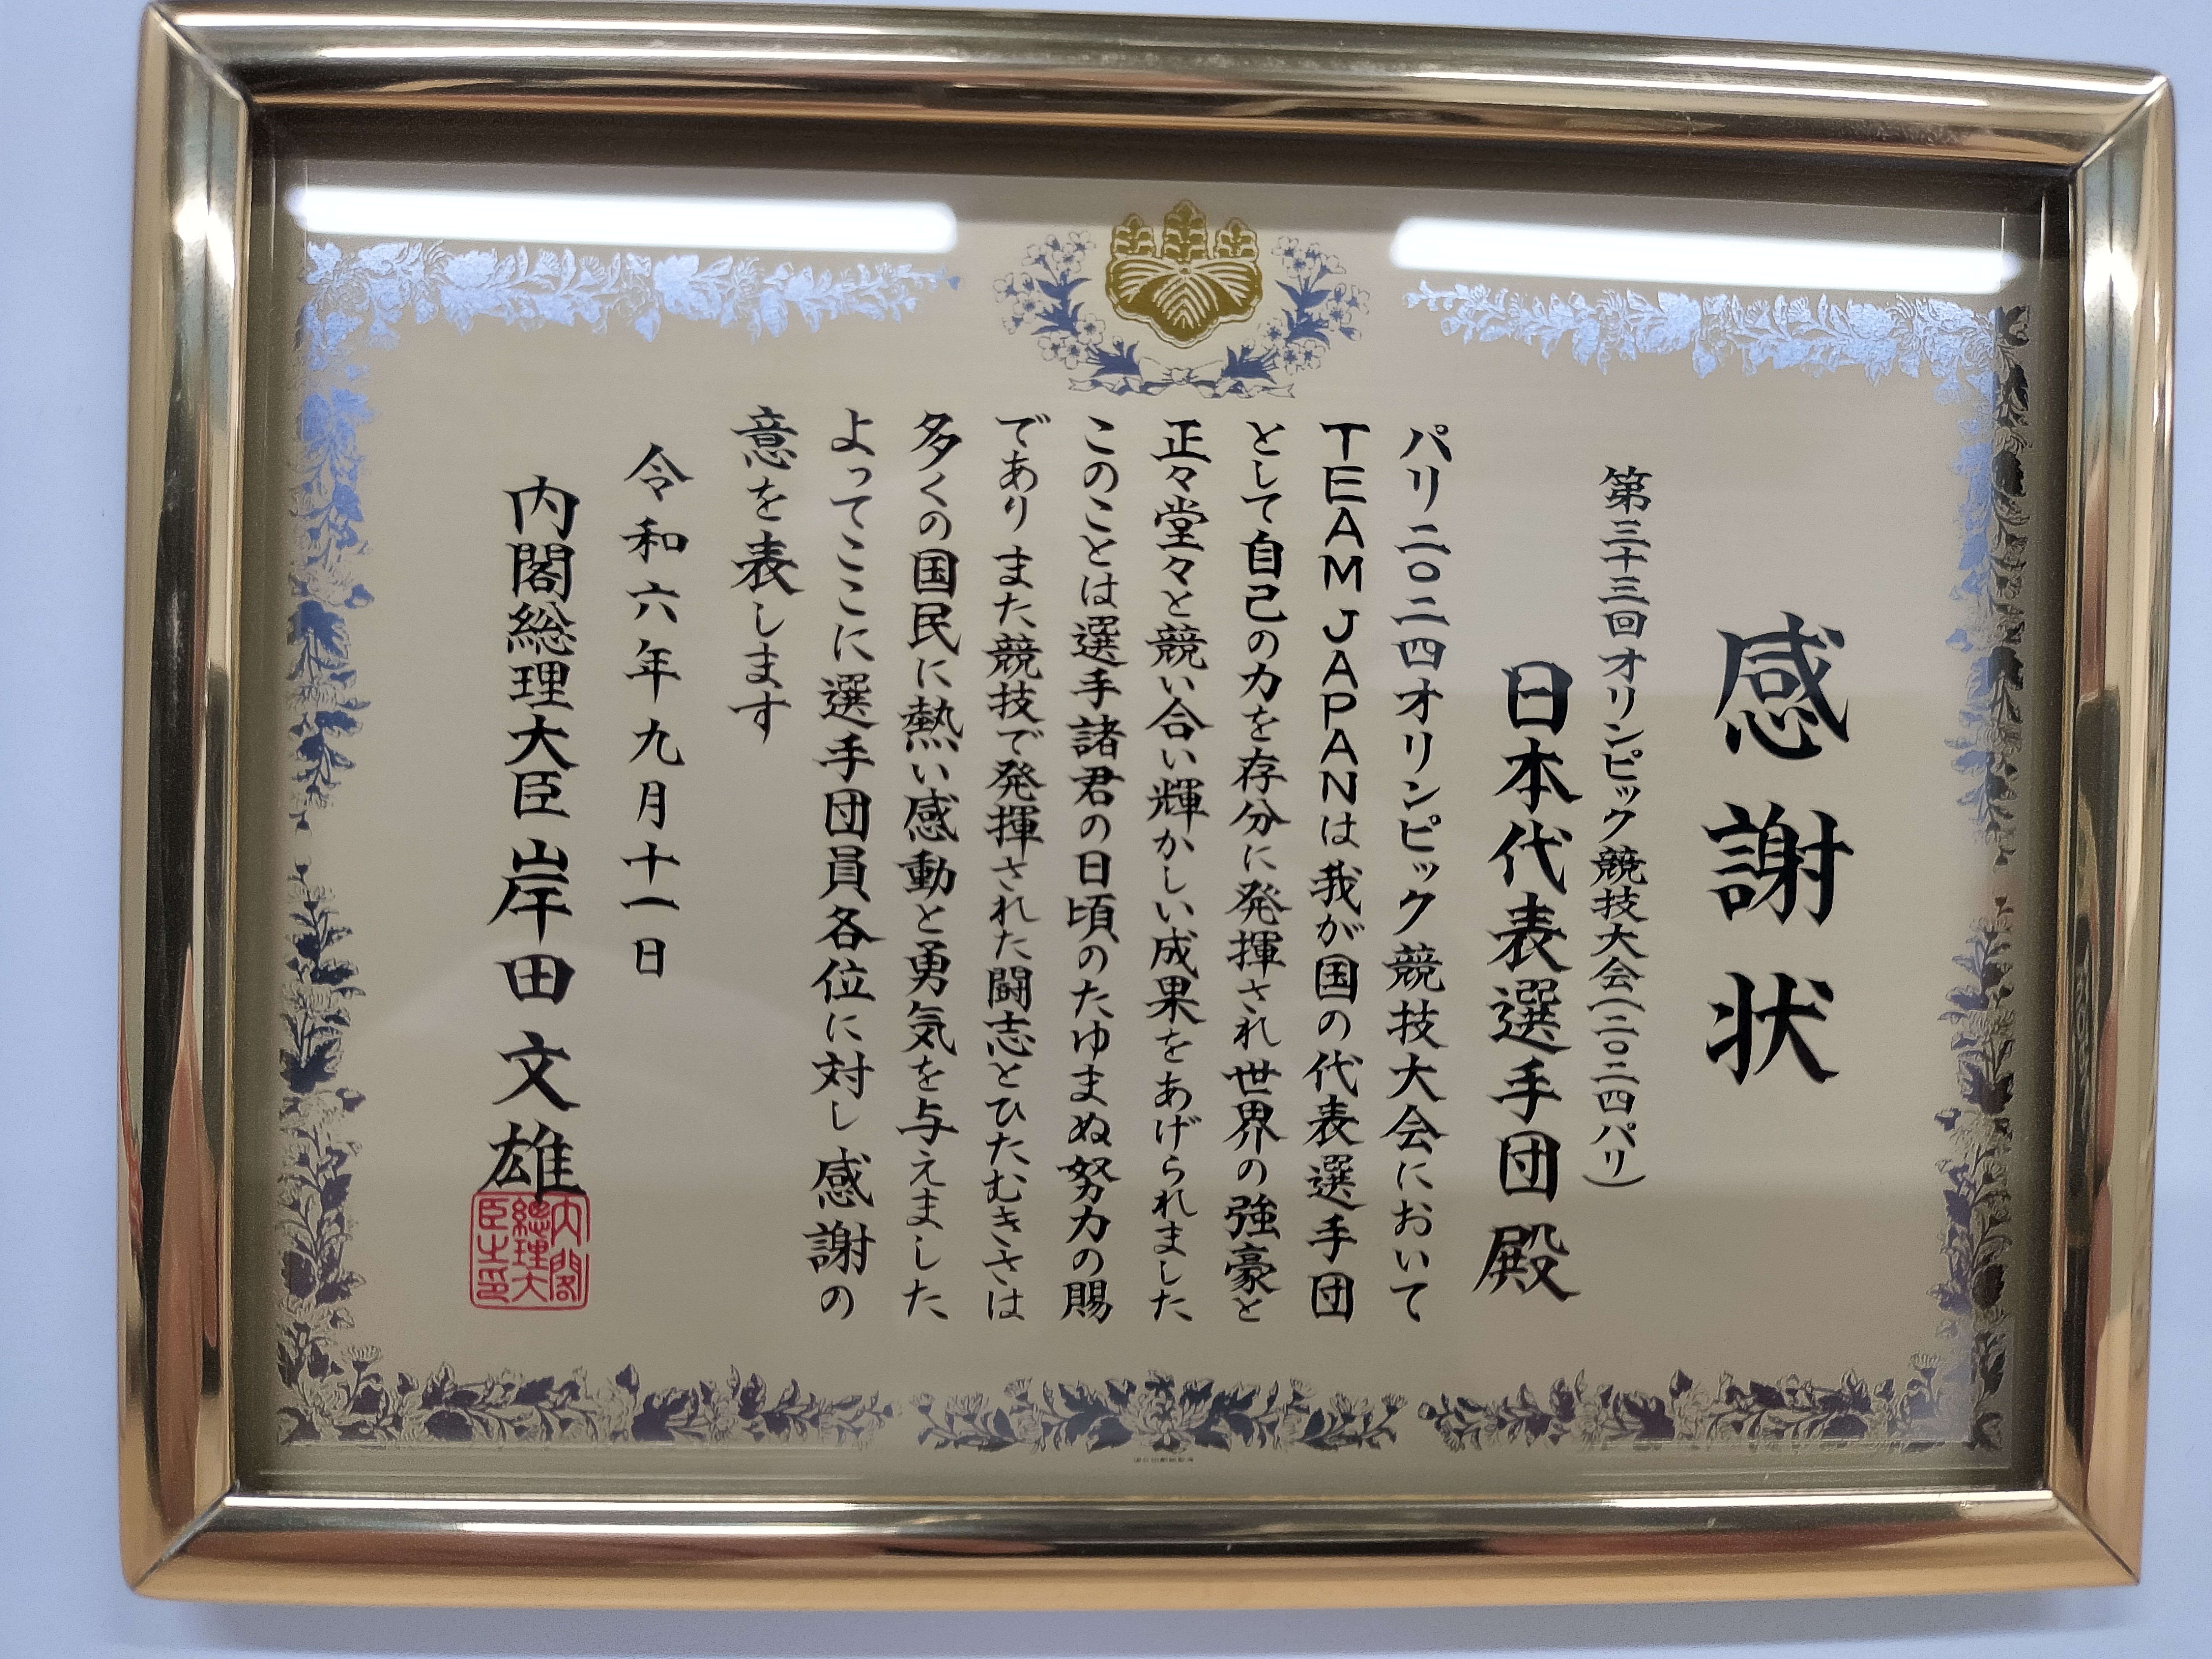 感謝状
第三十三回オリンピック競技大会(二〇二四パリ)
日本代表選手団殿
パリ二〇二四オリンピック競技大会において
TEAM JAPANは我が国の代表選手団
として自己の力を存分に発揮され世界の強豪と
正々堂々と競い合い輝かしい成果をあげられました
このことは選手諸君の日頃のたゆまぬ努力の賜
でありまた競技で発揮された闘志とひたむきさは
多くの国民に熱い感動と勇気を与えました
よってここに選手団員各位に対し感謝の
意を表します
令和六年九月十一日
内閣総理大臣 岸田文雄
内閣
總理大
臣之印